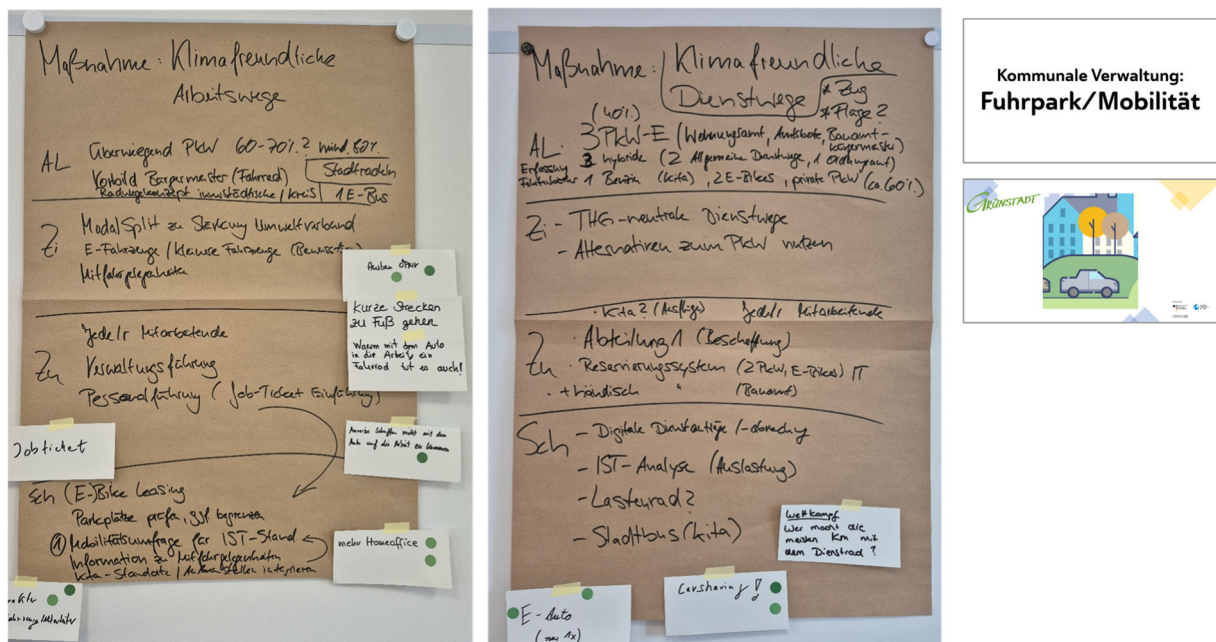 Maßnahme: Klimafreundliche
Arbeitswege
AL Überwiegend PKW 60-70%? mind. 50%
Vorbild Bürgermeister (Fahrrad)
Stadtradeln
Radwegekonzept innerstädtische / kreis
1 E-Bus
Zi Modal Split zu Stärkung Umweltverbund
E-Fahrzeuge / kleinere Fahrzeuge
Mitfahrgelegenheiten
Ausbau ÖPNV
Kurze Strecken
zu Fuß gehen
Warum mit dem Auto
in die Arbeit, ein
Fahrrad tut es auch!
Zu Jede/r Mitarbeitende
Verwaltungsführung
Personalführung (Job-Ticket Einführung)
Jobticket
Anreize schaffen nicht mit dem
Auto auf die Arbeit zu kommen
Sch (E-)Bike Leasing
Parkplätze prüfen, ggf begrenzen
1 Mobilitätsumfrage für IST-Stand
Information zu Mitfahrgelegenheiten
Kita-Standorte / Außenstellen integrieren
mehr Homeoffice
Maßnahme: Klimafreundliche
Dienstwege
* Zug
* Flüge?
(40%)
AL. 3 PKW-E (Wohnungsamt, Amtsbote, Bauamt-
bürgermeister)
Erfassung
3 hybride (2 Allgemeine Dienstwege, 1 Ordnungsamt)
1 Benzin (Kita), 2 E-Bikes, private PKW (ca. 60%)
Zi - THG-neutrale Dienstwege
- Alternativen zum PKW nutzen
· Kita? (Ausflüge) Jede/r Mitarbeitende
Zu · Abteilung 1 (Beschaffung)
· Reservierungssystem (2 PKW, E-Bikes) IT
· + händisch " (Bauamt)
Sch - Digitale Dienstanträge /-abrechng
- IST-Analyse (Auslastung)
- Lastenrad?
- Stadtbus (Kita)
Wettkampf
Wer macht die
meisten Km mit
dem Dienstrad?
E-Auto
(nur 1x)
Carsharing!
Kommunale Verwaltung:
Fuhrpark/Mobilität
GRÜNSTADT